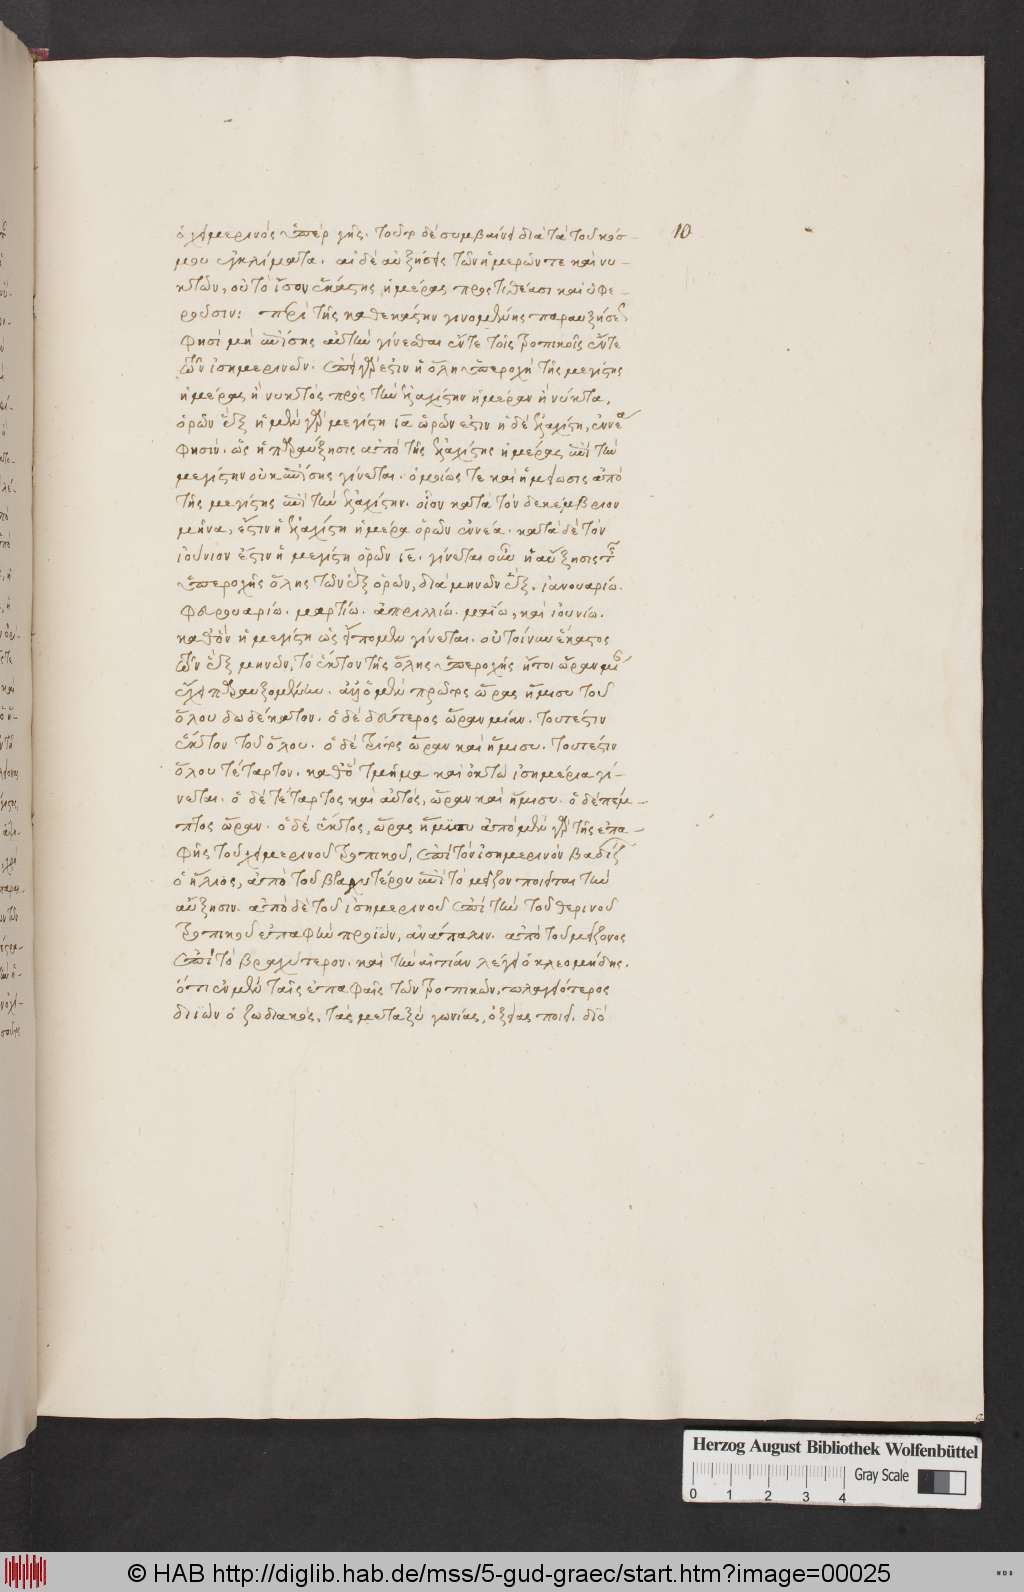 ὁ χειμερινὸς ὑπὲρ γῆς. τοῦτο δὲ συμβαίνει διὰ τὰ τοῦ κόσ-
10
μου ἐγκλίματα. αἱ δὲ αὐξήσεις τῶν ἡμερῶν τε καὶ νυ-
κτῶν, οὐ τὸ ἴσον ἑκάστης ἡμέρας προστιθέασι καὶ ὑφε-
ροῦσιν: περὶ τῆς καθεκάστην γινομένης παραυξήσε
φησὶ μὴ ἐπίσης αὐτὴν γίνεσθαι ἔν τε τοῖς τροπικοῖς ἔν τε
τῶν ἰσημερινῶν. ἐπεὶ γάρ ἐστιν ἡ ὅλη ὑπεροχὴ τῆς μεγίστης
ἡμέρας ἢ νυκτὸς πρὸς τὴν ἐλαχίστην ἡμέραν ἢ νύκτα,
ὁρῶν ἓξ ἡ μὲν γὰρ μεγίστη ιε ὡρῶν ἐστιν ἡ δὲ ἐλαχίστη, ἐννέα
φησίν. ὡς ἡ παραύξησις ἀπὸ τῆς ἐλαχίστης ἡμέρας ἐπὶ τὴν
μεγίστην οὐκ ἐπίσης γίνεται. ὁμοίως τε καὶ ἡ μείωσις ἀπὸ
τῆς μεγίστης ἐπὶ τὴν ἐλαχίστην. οἷον κατὰ τὸν δεκέμβριον
μῆνα, ἔστιν ἡ ἐλαχίστη ἡμέρα ὁρῶν ἐννέα. κατὰ δὲ τὸν
ἰούνιον ἐστιν ἡ μεγίστη ὁρῶν ιε. γίνεται οὖν ἡ αὔξησις τῆς
ὑπεροχῆς ὅλης τῶν ἓξ ὁρῶν, διὰ μηνῶν ἓξ. ἰανουαρίω.
φευρουαρίω. μαρτίω. ἀπριλλίω. μαΐω, καὶ ἰουνίω.
καθ' ὃν ἡ μεγίστη ὡς εἴπομεν γίνεται. οὐ τοίνυν ἕκαστος
τῶν ἓξ μηνῶν, τὸ ἕκτον τῆς ὅλης ὑπεροχῆς ἤτοι ὥραν μί
ἔχει παραυξομένην. ἀλλ' ὁ μὲν πρῶτος ὥρας ἥμισυ τοῦ
ὅλου δωδέκατον. ὁ δὲ δεύτερος ὥραν μίαν. τουτέστιν
ἕκτον τοῦ ὅλου. ὁ δὲ τρίτος ὥραν καὶ ἥμισυ. τουτέστιν
ὅλου τέταρτον. καθ' ὃ τμῆμα καὶ ὀκτὼ ἰσημέρια γί-
νεται. ὁ δὲ τέταρτος καὶ αὐτός, ὥραν καὶ ἥμισυ. ὁ δὲ πέμ-
πτος ὥραν. ὁ δὲ ἕκτος, ὥρας ἥμισυ ἀπὸ μὲν γὰρ τῆς ἐπα-
φῆς τοῦ χειμερινοῦ τροπικοῦ, ἐπὶ τὸν ἰσημερινὸν βαδίζ
ὁ ἥλιος, ἀπὸ τοῦ βραχυτέρου ἐπὶ τὸ μεῖζον ποιεῖται τὴν
αὔξησιν. ἀπὸ δὲ τοῦ ἰσημερινοῦ ἐπὶ τὴν τοῦ θερινοῦ
τροπικοῦ ἐπαφὴν προϊὼν, ἀνάπαλιν. ἀπὸ τοῦ μείζονος
ἐπὶ τὸ βραχύτερον. καὶ τὴν αἰτίαν λέγει ὁ κλεομήδης.
ὅτι ἐν μὲν ταῖς ἐπαφαῖς τῶν τροπικῶν, πλαγιότερος
διϊὼν ὁ ζωδιακὸς, τὰς μεταξὺ γωνίας, ὀξείας ποιεῖ. διὸ
Herzog August Bibliothek Wolfenbüttel
Gray Scale
0 1 2 3 4
© HAB http://diglib.hab.de/mss/5-gud-graec/start.htm?image=00025